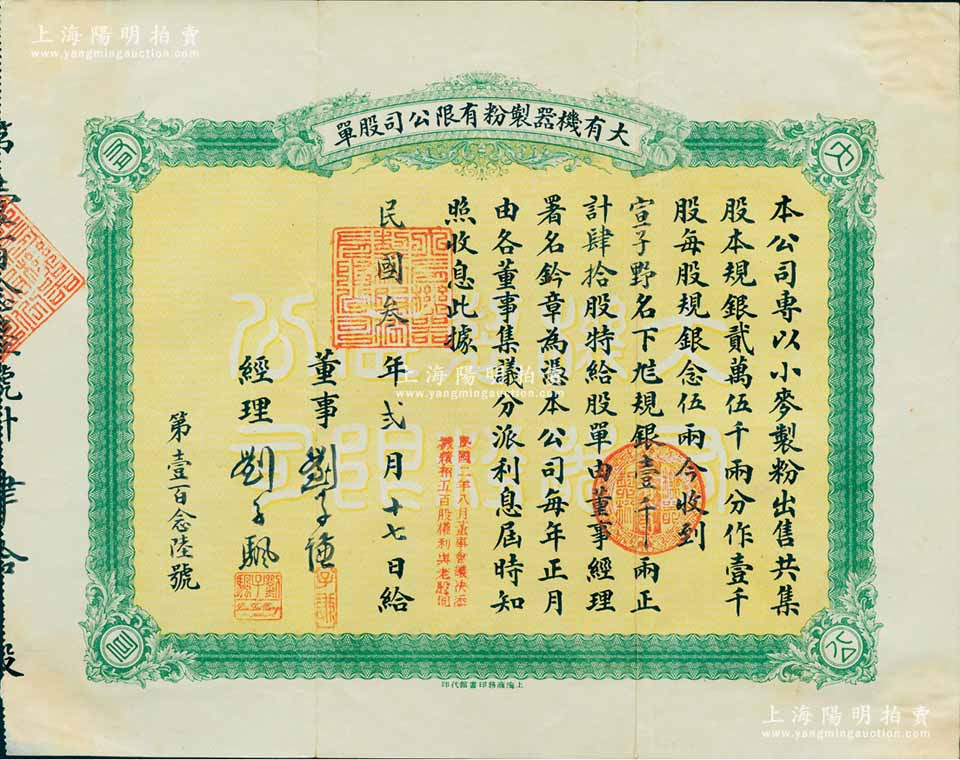 上海陽明拍賣
www.yangmingauction.com
大有機器製粉有限公司股單
大
有
公
司
本公司專以小麥製粉出售共集
股本規銀貳萬伍千兩分作壹千
股每股規銀念伍兩今收到
宣子野名下規銀壹千兩正
計肆拾股特給股單由董事經理
署名鈐章為憑本公司每年正月
由各董事集議分派利息屆時知
照收息此據
民國二年八月董事會議決添
招五百股權利與老股同
民國叁年弍月十七日給
董事 劉子謙
經理 劉子颿
第壹百念陸號
大機製有公
有器粉限司
上海商務印書館代印
上海陽明拍賣
www.yangmingauction.com
上海陽明拍賣
www.yangmingauction.com